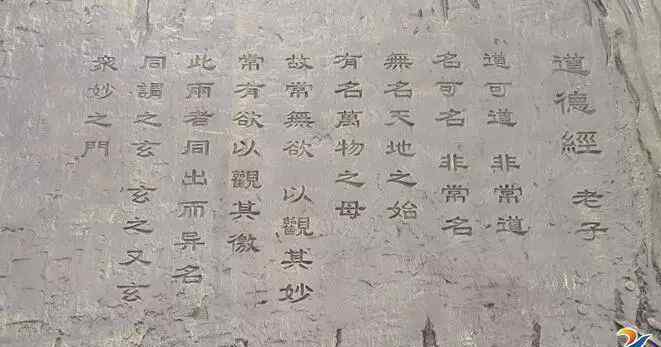 道德經 老子
道可道 非常道
名可名 非常名
無名天地之始
有名萬物之母
故常無欲 以觀其妙
常有欲以觀其徼
此兩者同出而异名
同謂之玄 玄之又玄
衆妙之門